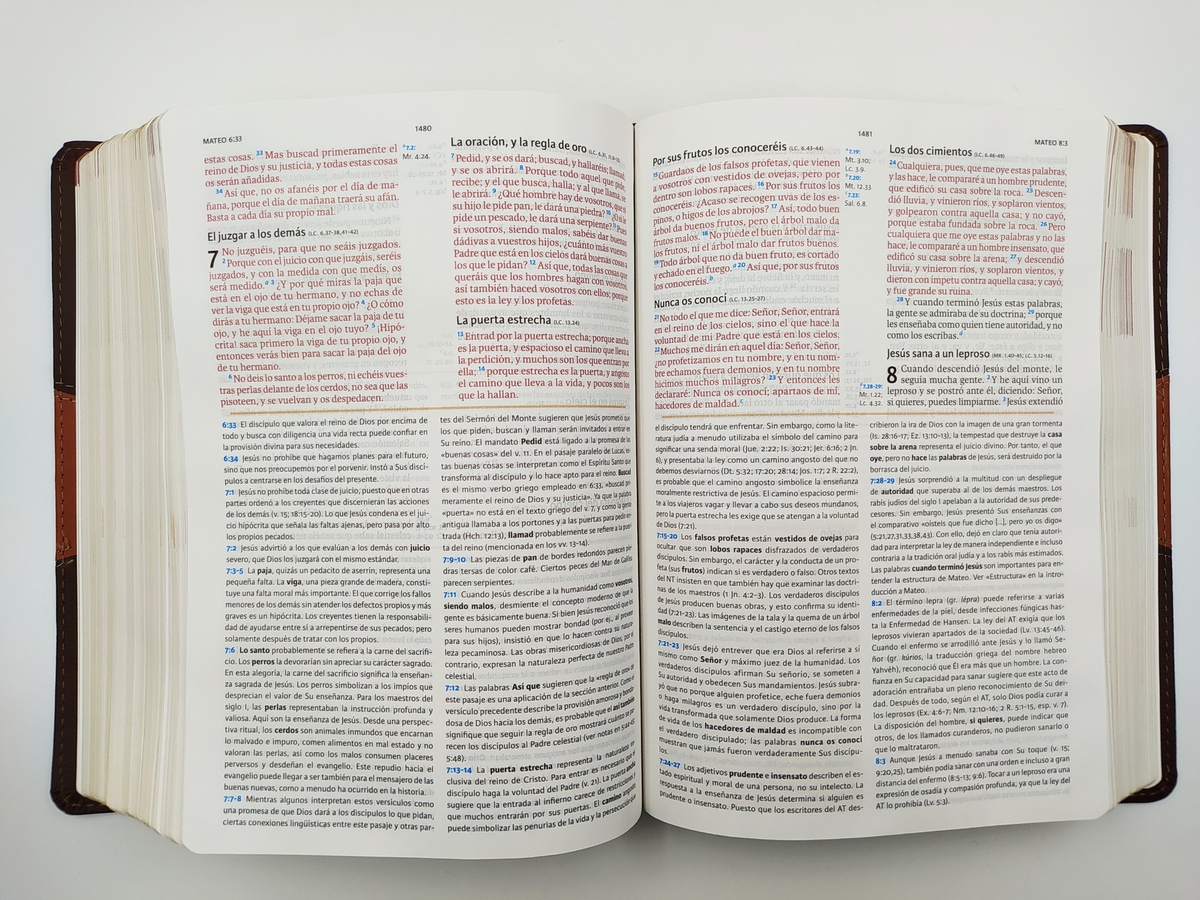 MATEO 6:33
1480
estas cosas. 33 Mas buscad primeramente el
reino de Dios y su justicia, y todas estas cosas
os serán añadidas.
34 Así que, no os afanéis por el día de ma-
ñana, porque el día de mañana traerá su afán.
Basta a cada día su propio mal.
El juzgar a los demás (LC. 6.37-38,41-42)
7 No juzguéis, para que no seáis juzgados.
2 Porque con el juicio con que juzgáis, seréis
juzgados, y con la medida con que medís, os
será medido.a 3 ¿Y por qué miras la paja que
está en el ojo de tu hermano, y no echas de
ver la viga que está en tu propio ojo? 4 ¿O cómo
dirás a tu hermano: Déjame sacar la paja de tu
ojo, y he aquí la viga en el ojo tuyo? 5 ¡Hipó-
crita! saca primero la viga de tu propio ojo, y
entonces verás bien para sacar la paja del ojo
de tu hermano.
6 No deis lo santo a los perros, ni echéis vues-
tras perlas delante de los cerdos, no sea que las
pisoteen, y se vuelvan y os despedacen.
a 7.2:
Mr. 4:24.
La oración, y la regla de oro
7 Pedid, y se os dará; buscad, y hallaréis; llamad,
y se os abrirá. 8 Porque todo aquel que pide,
recibe; y el que busca, halla; y al que llama, se
le abrirá. 9 ¿Qué hombre hay de vosotros, que si
su hijo le pide pan, le dará una piedra? 10 ¿O si le
pide un pescado, le dará una serpiente? 11 Pues
si vosotros, siendo malos, sabéis dar buenas
dádivas a vuestros hijos, ¿cuánto más vuestro
Padre que está en los cielos dará buenas cosas a
los que le pidan? 12 Así que, todas las cosas que
queráis que los hombres hagan con vosotros,
así también haced vosotros con ellos; porque
esto es la ley y los profetas.
La puerta estrecha (LC. 13.24)
13 Entrad por la puerta estrecha; porque ancha
es la puerta, y espacioso el camino que lleva a
la perdición, y muchos son los que entran por
ella; 14 porque estrecha es la puerta, y angosto
el camino que lleva a la vida, y pocos son los
que la hallan.
6:33 El discípulo que valora el reino de Dios por encima de
todo y busca con diligencia una vida recta puede confiar en
la provisión divina para sus necesidades.
6:34 Jesús no prohíbe que hagamos planes para el futuro,
sino que nos preocupemos por el porvenir. Instó a Sus discí-
pulos a centrarse en los desafíos del presente.
7:1 Jesús no prohíbe toda clase de juicio; puesto que en otras
partes ordenó a los creyentes que discernieran las acciones
de los demás (v. 15; 18:15-20). Lo que Jesús condena es el jui-
cio hipócrita que señala las faltas ajenas, pero pasa por alto
los propios pecados.
7:2 Jesús advirtió a los que evalúan a los demás con juicio
severo, que Dios los juzgará con el mismo estándar.
7:3-5 La paja, quizás un pedacito de aserrín, representa una
pequeña falta. La viga, una pieza grande de madera, consti-
tuye una falta moral más importante. El que corrige los fallos
menores de los demás sin atender los defectos propios y más
graves es un hipócrita. Los creyentes tienen la responsabili-
dad de ayudarse entre sí a arrepentirse de sus pecados; pero
solamente después de tratar con los propios.
7:6 Lo santo probablemente se refiera a la carne del sacrifi-
cio. Los perros la devorarían sin apreciar su carácter sagrado.
En esta alegoría, la carne del sacrificio significa la enseñan-
za sagrada de Jesús. Los perros simbolizan a los impíos que
desprecian el valor de Su enseñanza. Para los maestros del
siglo I, las perlas representaban la instrucción profunda y
valiosa. Aquí son la enseñanza de Jesús. Desde una perspec-
tiva ritual, los cerdos son animales inmundos que encarnan
lo malvado e impuro, comen alimentos en mal estado y no
valoran las perlas, así como los malos consumen placeres
perversos y desdeñan el evangelio. Este repudio hacia el
evangelio puede llegar a ser también para el mensajero de las
buenas nuevas, como a menudo ha ocurrido en la historia.
7:7-8 Mientras algunos interpretan estos versículos como
una promesa de que Dios dará a los discípulos lo que pidan,
ciertas conexiones lingüísticas entre este pasaje y otras par-
tes del Sermón del Monte sugieren que Jesús prometió que
los que piden, buscan y llaman serán invitados a entrar en
Su reino. El mandato Pedid está ligado a la promesa de las
«buenas cosas» del v. 11. En el pasaje paralelo de Lucas, es-
tas buenas cosas se interpretan como el Espíritu Santo que
transforma al discípulo y lo hace apto para el reino. Buscad
es el mismo verbo griego empleado en 6:33, «buscad pri-
meramente el reino de Dios y su justicia». Ya que la palabra
«puerta» no está en el texto griego del v. 7, y como la gente
antigua llamaba a los portones y a las puertas para pedir en-
trada (Hch. 12:13), llamad probablemente se refiere a la puer-
ta del reino (mencionada en los vv. 13-14).
7:9-10 Las piezas de pan de bordes redondos parecen pie-
dras tersas de color café. Ciertos peces del Mar de Galilea
parecen serpientes.
7:11 Cuando Jesús describe a la humanidad como vosotros,
siendo malos, desmiente el concepto moderno que la
gente es básicamente buena. Si bien Jesús reconoció que los
seres humanos pueden mostrar bondad (por ej., al proveer
para sus hijos), insistió en que lo hacen contra su natura-
leza pecaminosa. Las obras misericordiosas de Dios, por el
contrario, expresan la naturaleza perfecta de nuestro Padre
celestial.
7:12 Las palabras Así que sugieren que la «regla de oro» de
este pasaje es una aplicación de la sección anterior. Como el
versículo precedente describe la provisión amorosa y bonda-
dosa de Dios hacia los demás, es probable que así también
signifique que seguir la regla de oro mostrará cuánto se pa-
recen los discípulos al Padre celestial (ver notas en 5:44-45
5:48).
7:13-14 La puerta estrecha representa la naturaleza ex-
clusiva del reino de Cristo. Para entrar es necesario que el
discípulo haga la voluntad del Padre (v. 21). La puerta ancha
sugiere que la entrada al infierno carece de restricciones y
que muchos entrarán por sus puertas. El camino angosto
puede simbolizar las penurias de la vida y la persecución que
1481
MATEO 8:3
Por sus frutos los conoceréis (LC. 6.43-44)
15 Guardaos de los falsos profetas, que vienen
a vosotros con vestidos de ovejas, pero por
dentro son lobos rapaces. 16 Por sus frutos los
conoceréis. ¿Acaso se recogen uvas de los es-
pinos, o higos de los abrojos? 17 Así, todo buen
árbol da buenos frutos, pero el árbol malo da
frutos malos. 18 No puede el buen árbol dar ma-
los frutos, ni el árbol malo dar frutos buenos.
19 Todo árbol que no da buen fruto, es cortado
y echado en el fuego.a 20 Así que, por sus frutos
los conoceréis.b
Nunca os conocí (LC. 13.25-27)
21 No todo el que me dice: Señor, Señor, entrará
en el reino de los cielos, sino el que hace la
voluntad de mi Padre que está en los cielos.
22 Muchos me dirán en aquel día: Señor, Señor,
¿no profetizamos en tu nombre, y en tu nom-
bre echamos fuera demonios, y en tu nombre
hicimos muchos milagros? 23 Y entonces les
declararé: Nunca os conocí; apartaos de mí,
hacedores de maldad.c
a 7.19:
Mt. 3.10;
Lc. 3.9.
b 7.20:
Mt. 12.33.
c 7.23:
Sal. 6.8.
d 7.28-29:
Mr. 1.22;
Lc. 4.32.
Los dos cimientos (LC. 6.46-49)
24 Cualquiera, pues, que me oye estas palabras,
y las hace, le compararé a un hombre prudente,
que edificó su casa sobre la roca. 25 Descen-
dió lluvia, y vinieron ríos, y soplaron vientos,
y golpearon contra aquella casa; y no cayó,
porque estaba fundada sobre la roca. 26 Pero
cualquiera que me oye estas palabras y no las
hace, le compararé a un hombre insensato, que
edificó su casa sobre la arena; 27 y descendió
lluvia, y vinieron ríos, y soplaron vientos, y
dieron con ímpetu contra aquella casa; y cayó,
y fue grande su ruina.
28 Y cuando terminó Jesús estas palabras,
la gente se admiraba de su doctrina; 29 porque
les enseñaba como quien tiene autoridad, y no
como los escribas.d
Jesús sana a un leproso (MR. 1.40-45; LC. 5.12-16)
8 Cuando descendió Jesús del monte, le
seguía mucha gente. 2 Y he aquí vino un
leproso y se postró ante él, diciendo: Señor,
si quieres, puedes limpiarme. 3 Jesús extendió
el discípulo tendrá que enfrentar. Sin embargo, como la lite-
ratura judía a menudo utilizaba el símbolo del camino para
significar una senda moral (Jue. 2:22; Is. 30:21; Jer. 6:16; 2 Jn.
6), y presentaba la ley como un camino angosto del que no
debemos desviarnos (Dt. 5:32; 17:20; 28:14; Jos. 1:7; 2 R. 22:2),
es probable que el camino angosto simbolice la enseñanza
moralmente restrictiva de Jesús. El camino espacioso permi-
te a los viajeros vagar y llevar a cabo sus deseos mundanos,
pero la puerta estrecha les exige que se atengan a la voluntad
de Dios (7:21).
7:15-20 Los falsos profetas están vestidos de ovejas para
ocultar que son lobos rapaces disfrazados de verdaderos
discípulos. Sin embargo, el carácter y la conducta de un pro-
feta (sus frutos) indican si es verdadero o falso. Otros textos
del NT insisten en que también hay que examinar las doctri-
nas de los maestros (1 Jn. 4:2-3). Los verdaderos discípulos
de Jesús producen buenas obras, y esto confirma su identi-
dad (7:21-23). Las imágenes de la tala y la quema de un árbol
malo describen la sentencia y el castigo eterno de los falsos
discípulos.
7:21-23 Jesús dejó entrever que era Dios al referirse a sí
mismo como Señor y máximo juez de la humanidad. Los
verdaderos discípulos afirman Su señorío, se someten a
Su autoridad y obedecen Sus mandamientos. Jesús subra-
yó que no porque alguien profetice, eche fuera demonios
o haga milagros es un verdadero discípulo, sino por la
vida transformada que solamente Dios produce. La forma
de vida de los hacedores de maldad es incompatible con
el verdadero discipulado; las palabras nunca os conocí
muestran que jamás fueron verdaderamente Sus discípu-
los.
7:24-27 Los adjetivos prudente e insensato describen el es-
tado espiritual y moral de una persona, no su intelecto. La
respuesta a la enseñanza de Jesús determina si alguien es
prudente o insensato. Puesto que los escritores del AT des-
cribieron la ira de Dios con la imagen de una gran tormenta
(Is. 28:16-17; Ez. 13:10-13), la tempestad que destruye la casa
sobre la arena representa el juicio divino. Por tanto, el que
oye, pero no hace las palabras de Jesús, será destruido por la
borrasca del juicio.
7:28-29 Jesús sorprendió a la multitud con un despliegue
de autoridad que superaba al de los demás maestros. Los
rabís judíos del siglo I apelaban a la autoridad de sus prede-
cesores. Sin embargo, Jesús presentó Sus enseñanzas con
el comparativo «oísteis que fue dicho [...], pero yo os digo»
(5:21,27,31,33,38,43). Con ello, dejó en claro que tenía autori-
dad para interpretar la ley de manera independiente e incluso
contraria a la tradición oral judía y a los rabís más estimados.
Las palabras cuando terminó Jesús son importantes para en-
tender la estructura de Mateo. Ver «Estructura» en la intro-
ducción a Mateo.
8:2 El término lepra (gr. lépra) puede referirse a varias
enfermedades de la piel, desde infecciones fúngicas has-
ta la Enfermedad de Hansen. La ley del AT exigía que los
leprosos vivieran apartados de la sociedad (Lv. 13:45-46).
Cuando el enfermo se arrodilló ante Jesús y lo llamó Se-
ñor (gr. kúrios, la traducción griega del nombre hebreo
Yahvéh), reconoció que Él era más que un hombre. La con-
fianza en Su capacidad para sanar sugiere que este acto de
adoración entrañaba un pleno reconocimiento de Su dei-
dad. Después de todo, según el AT, solo Dios podía curar a
los leprosos (Ex. 4:6-7; Nm. 12:10-16; 2 R. 5:1-15, esp. v. 7).
La disposición del hombre, si quieres, puede indicar que
otros, de los llamados curanderos, no pudieron sanarlo o
que lo maltrataron.
8:3 Aunque Jesús a menudo sanaba con Su toque (v. 15;
9:20,25), también podía sanar con una orden e incluso a gran
distancia del enfermo (8:5-13; 9:6). Tocar a un leproso era una
expresión de osadía y compasión profunda, ya que la ley del
AT lo prohibía (Lv. 5:3).